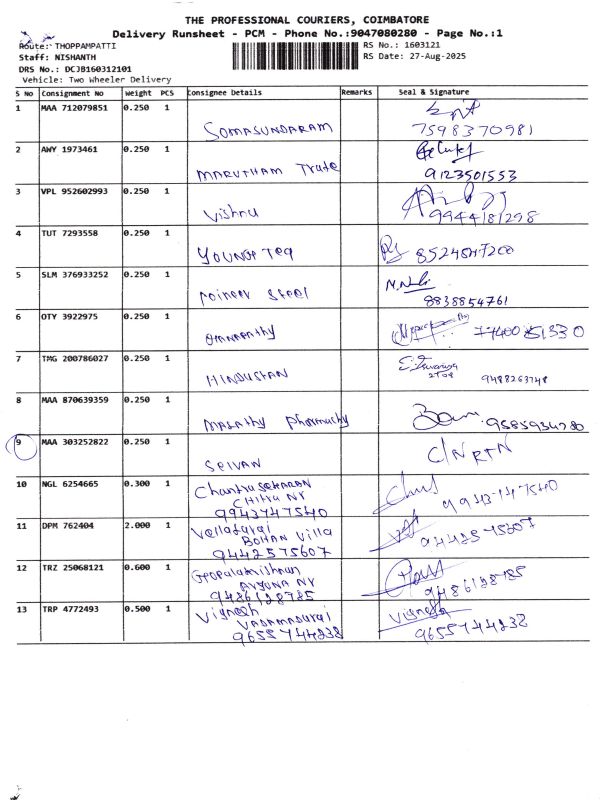 THE PROFESSIONAL COURIERS, COIMBATORE
Delivery Runsheet - PCM - Phone No.:9047080280 - Page No.:1
Route: THOPPAMPATTI
RS No.: 1603121
Staff: NISHANTH
RS Date: 27-Aug-2025
DRS No.: DCJB160312101
Vehicle: Two Wheeler Delivery
S No Consignment No Weight PCS Consignee Details Remarks Seal & Signature
1 MAA 712079851 0.250 1
SOMASUNDARAM 7598370981
2 AWY 1973461 0.250 1
MARUTHAM Trade 9123501553
3 VPL 952602993 0.250 1
Vishnu 9944181298
4 TUT 7293558 0.250 1
YOUNGE Teq
5 SLM 376933252 0.250 1
Poineer Steel 8838854761
6 OTY 3922975 0.250 1
7 TMG 200786027 0.250 1
HINDUSTAN 9488263748
8 MAA 870639359 0.250 1
Pharmachy 9585934280
9 MAA 303252822 0.250 1
SELVAN C/N RTN
10 NGL 6254665 0.300 1
ChandraSEKARAN
CHITRA NY
9943747540 9943747540
11 DPM 762404 2.000 1
Velladurai
ROHAN Villa
9442575607 9442575607
12 TRZ 25068121 0.600 1
Gopalakrishnan
ARJUNA NY
9486128785 9486128785
13 TRP 4772493 0.500 1
Vignesh Vignesh
VADAMADURAI
9655744232 9655744232